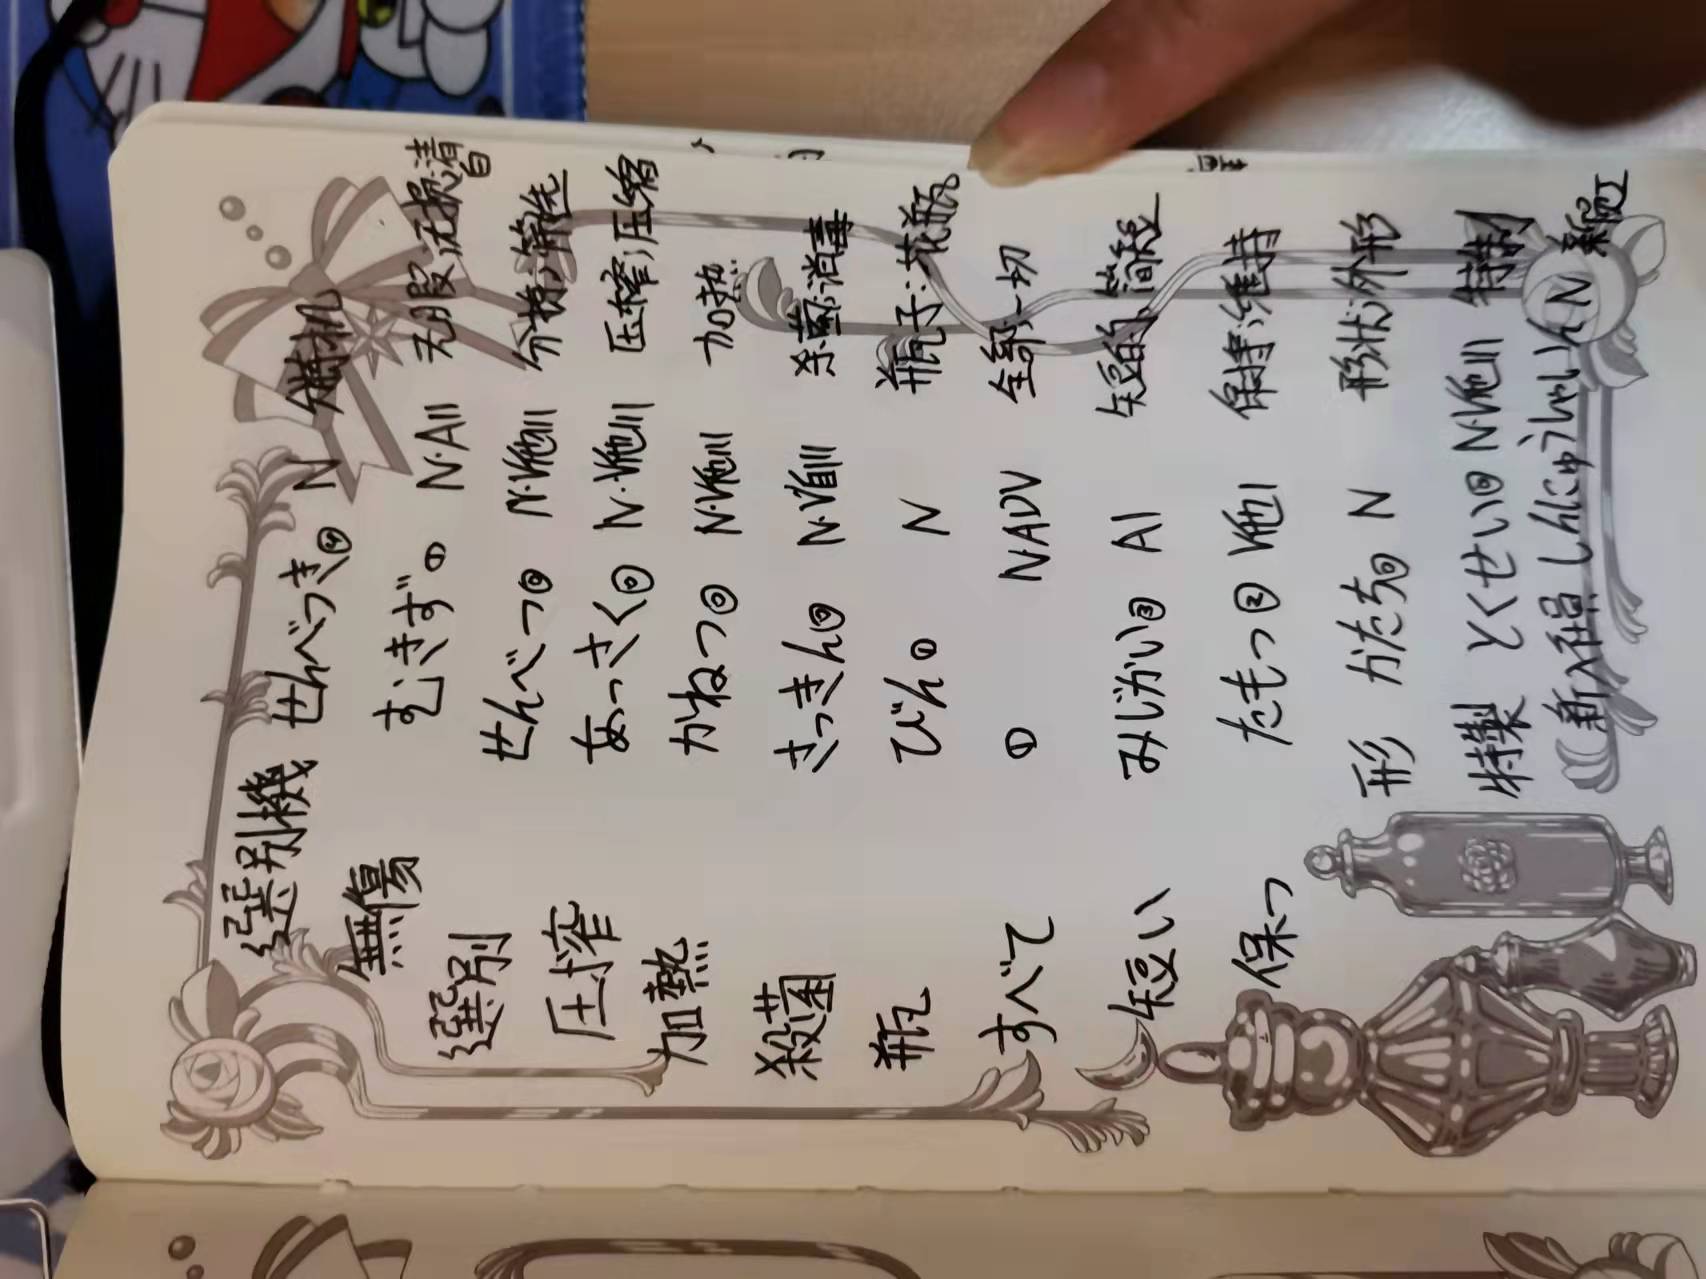 選別機 せんべつき④ N 分
無傷 むきず① N·AⅡ 无瑕;无损;清白
選別 せんべつ⓪ N·V他Ⅲ 分拣;筛选
圧搾 あっさく⓪ N·V他Ⅲ 压榨;压缩
加熱 かねつ⓪ N·V他Ⅲ 加热
殺菌 さっきん⓪ N·V自Ⅲ 杀菌;消毒
瓶 びん① N 瓶子;花瓶
すべて ① N·ADV 全部;一切
短い みじかい③ AⅠ 短的;简短
保つ たもつ② V他Ⅰ 保持;维持
形 かたち⓪ N 形状;外形
特製 とくせい⓪ N·V他Ⅲ 特制
新入社員 しんにゅうしゃいん N 新员工